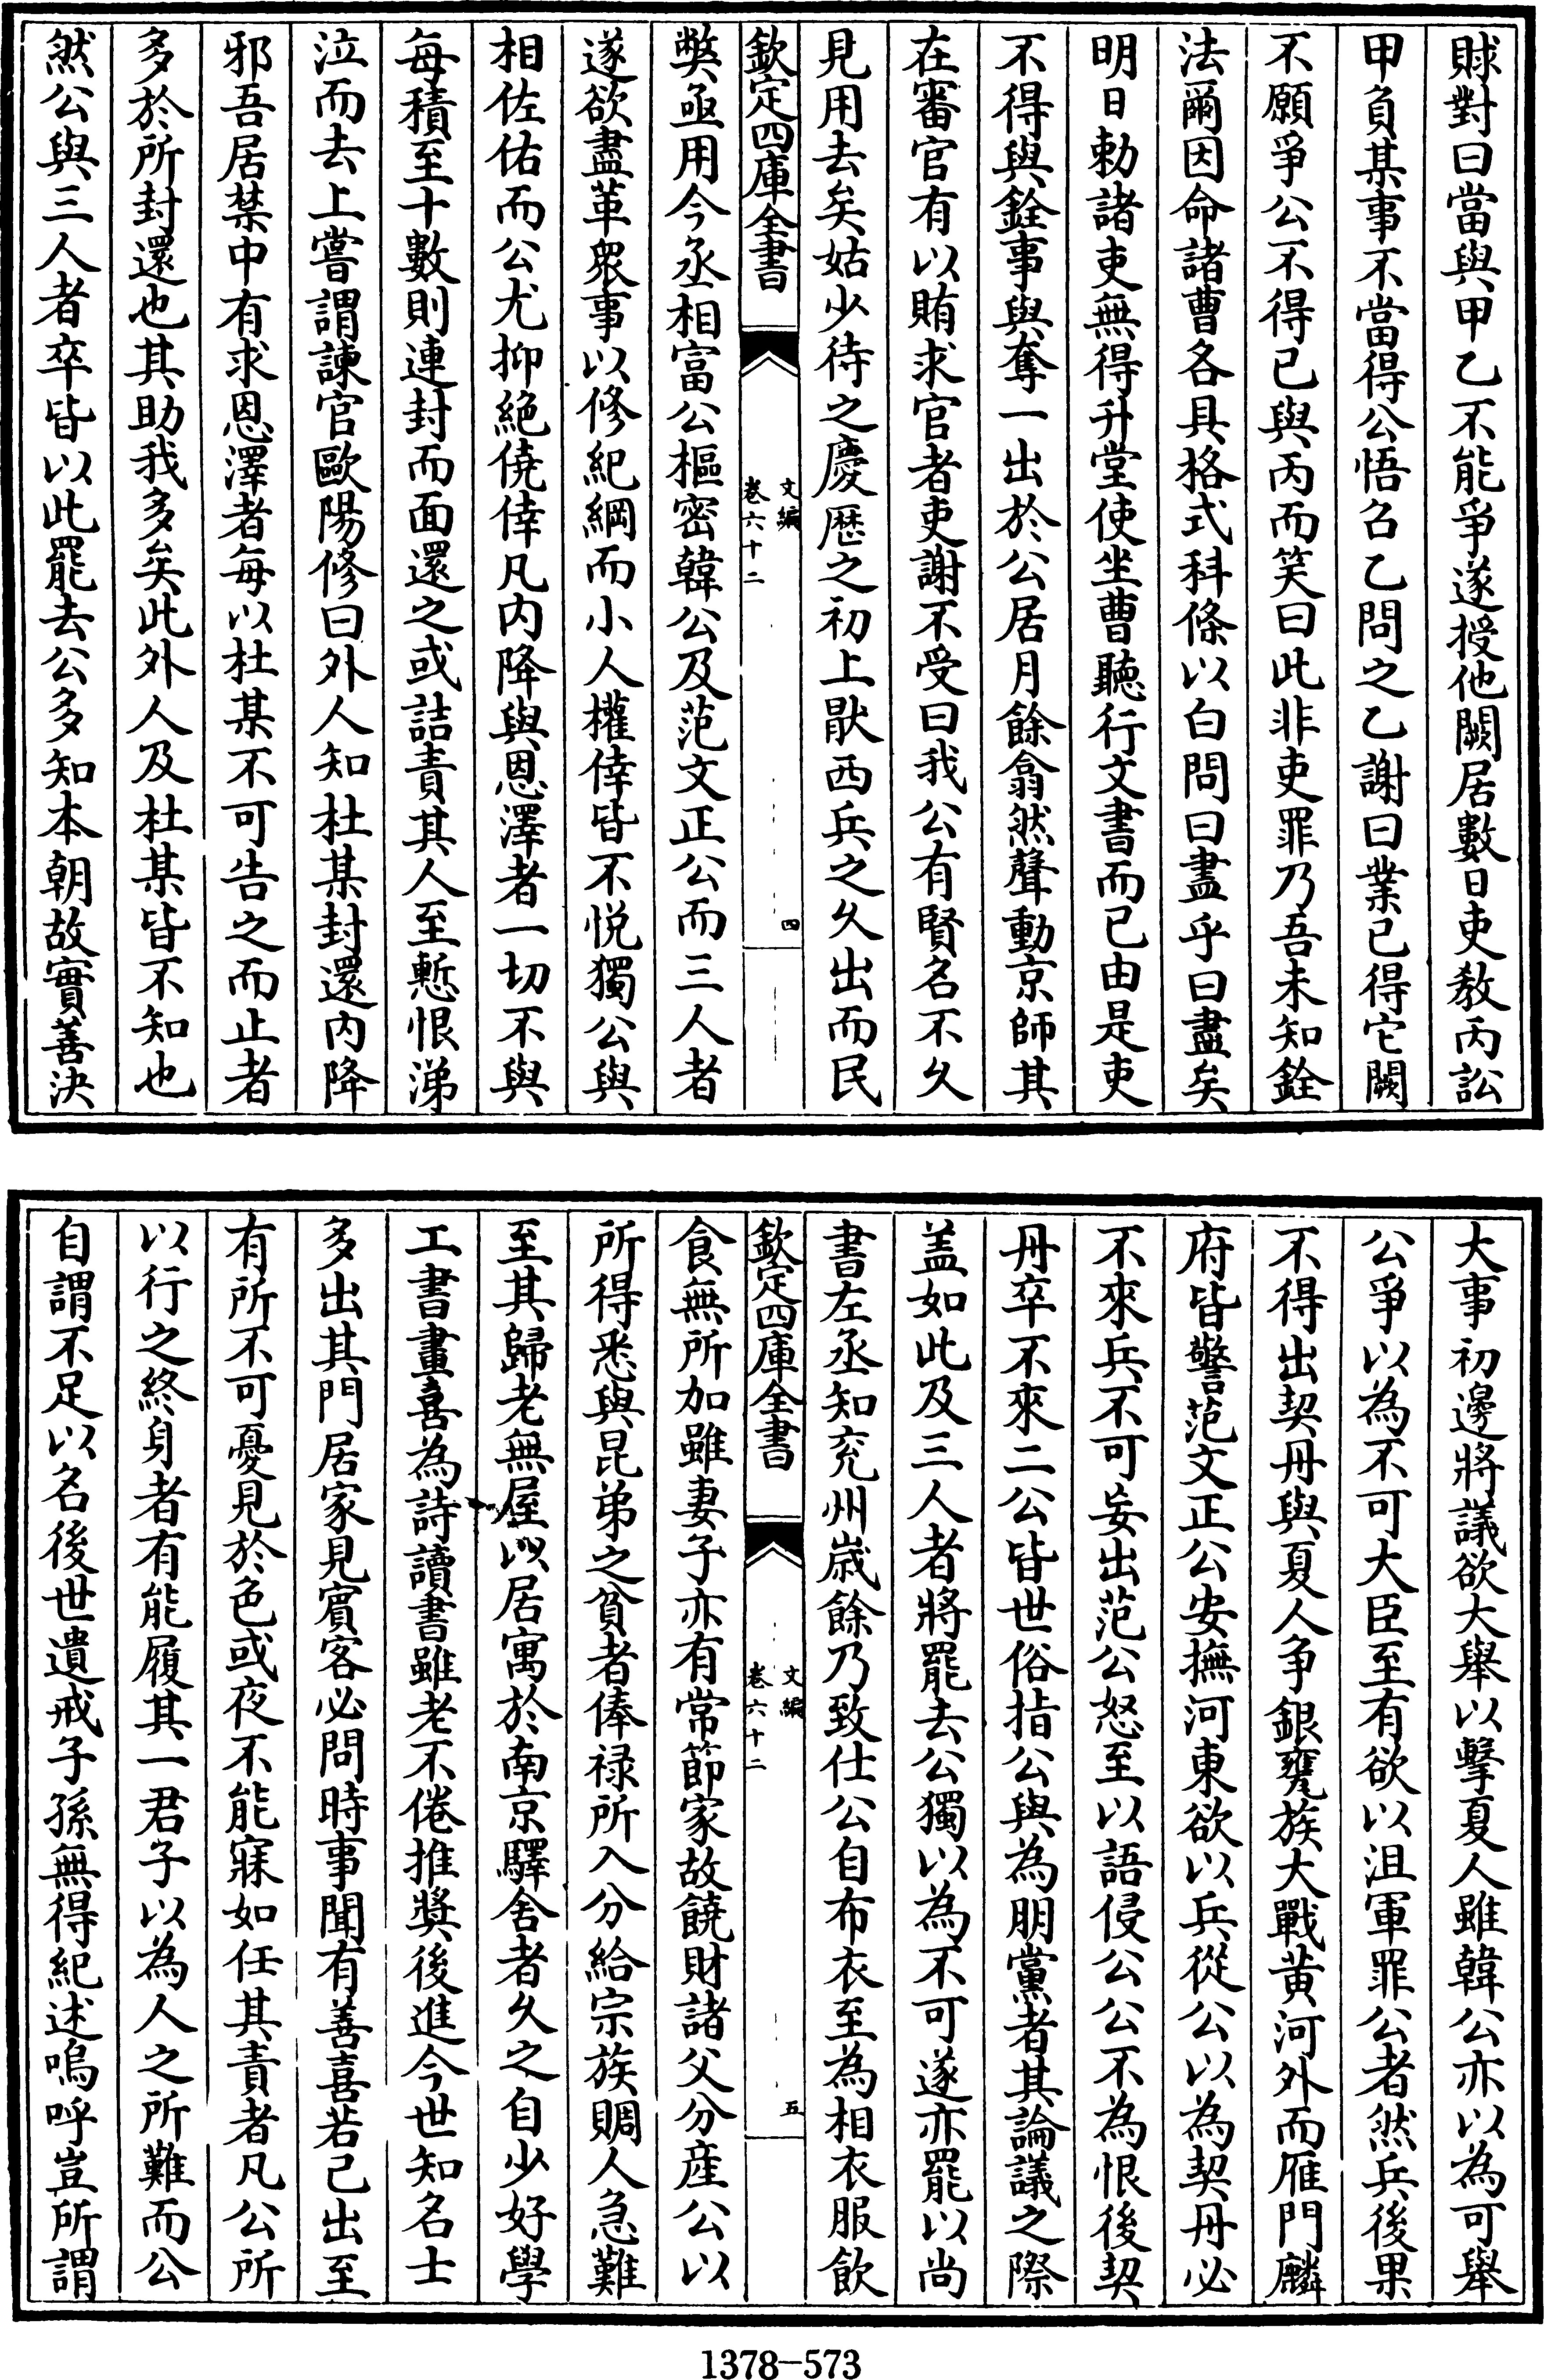 賕對曰當與甲乙不能爭遂授他闕居數日吏教丙訟
甲負某事不當得公悟召乙問之乙謝曰業已得它闕
不願爭公不得已與丙而笑曰此非吏罪乃吾未知銓
法爾因命諸曹各具格式科條以白問曰盡乎曰盡矣
明日勅諸吏無得升堂使坐曹聽行文書而已由是吏
不得與銓事與奪一出於公居月餘翕然聲動京師其
在審官有以賄求官者吏謝不受曰我公有賢名不久
見用去矣姑少待之慶歴之初上厭西兵之久出而民
欽定四庫全書
文編
卷六十二
四
弊亟用今丞相富公樞密韓公及范文正公而三人者
遂欲盡革衆事以修紀綱而小人權倖皆不悦獨公與
相佐佑而公尤抑絶僥倖凡内降與恩澤者一切不與
每積至十數則連封而面還之或詰責其人至慙恨涕
泣而去上嘗謂諫官歐陽修曰外人知杜某封還内降
邪吾居禁中有求恩澤者每以杜某不可告之而止者
多於所封還也其助我多矣此外人及杜某皆不知也
然公與三人者卒皆以此罷去公多知本朝故實善決
大事初邊將議欲大舉以擊夏人雖韓公亦以為可舉
公爭以為不可大臣至有欲以沮軍罪公者然兵後果
不得出契丹與夏人争銀甕族大戰黄河外而雁門麟
府皆警范文正公安撫河東欲以兵從公以為契丹必
不來兵不可妄出范公怒至以語侵公公不為恨後契
丹卒不來二公皆世俗指公與為朋黨者其論議之際
盖如此及三人者將罷去公獨以為不可遂亦罷以尚
書左丞知兖州歳餘乃致仕公自布衣至為相衣服飲
欽定四庫全書
文編
卷六十二
五
食無所加雖妻子亦有常節家故饒財諸父分産公以
所得悉與昆弟之貧者俸禄所入分給宗族賙人急難
至其歸老無屋以居寓於南京驛舍者久之自少好學
工書畫喜為詩讀書雖老不倦推奬後進今世知名士
多出其門居家見賓客必問時事聞有善喜若己出至
有所不可憂見於色或夜不能寐如任其責者凡公所
以行之終身者有能履其一君子以為人之所難而公
自謂不足以名後世遺戒子孫無得紀述嗚呼豈所謂
1378-573